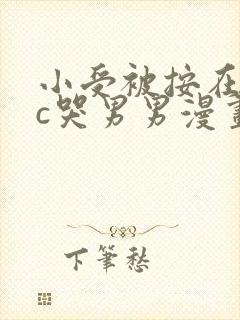 小受被按在
c哭男男漫畫
下筆愁